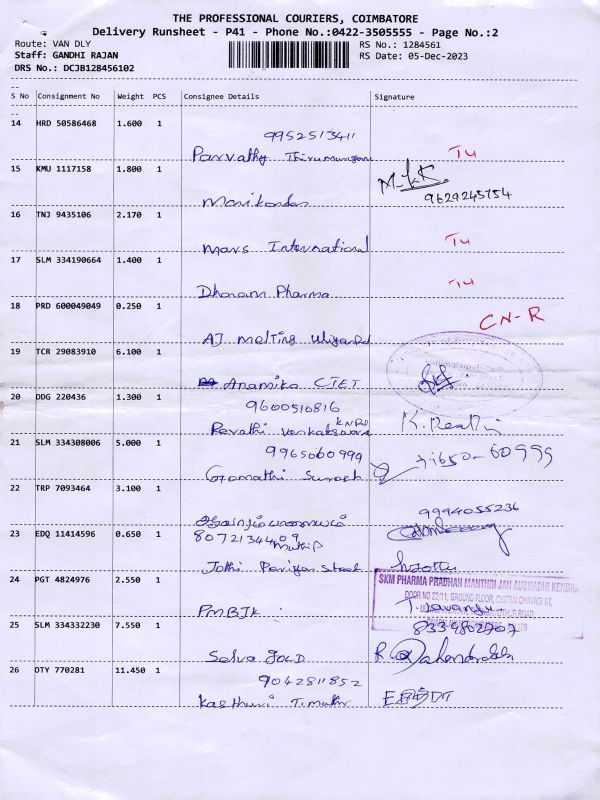 THE PROFESSIONAL COURIERS, COIMBATORE
Delivery Runsheet - P41 - Phone No.:0422-3505555 - Page No.:2
Route: VAN DLY
RS No.: 1284561
Staff: GANDHI RAJAN
RS Date: 05-Dec-2023
DRS No.: DCJB128456102
S No Consignment No Weight PCS Consignee Details Signature
14 HRD 50586468 1.600 1
9952513411
Parvathy Thirumurugan Tu
15 KMU 1117158 1.800 1
M.K.K
9629245754
Manikandan
16 TNJ 9435106 2.170 1
Mars International Tu
17 SLM 334190664 1.400 1
Dharam Pharma Tu
18 PRD 600049049 0.250 1
CN-R
AJ melting Wizard
19 TCR 29083910 6.100 1
Anamika CIET
20 DDG 220436 1.300 1
9600510816
Revathi
21 SLM 334308006 5.000 1
9965060999
Gomathi Suresh
22 TRP 7093464 3.100 1
9994055236
23 EDQ 11414596 0.650 1
8072134409
Jothi Periyar Street
24 PGT 4824976 2.550 1
SKM PHARMA PRADHAN MANTHRI JAN AUSHADHI KENDRA
DOOR NO 22/11, GROUND FLOOR,
PMBJK
25 SLM 334332230 7.550 1
Selva GOLD
26 OTY 770281 11.450 1
9042811852
Kasthuri T.